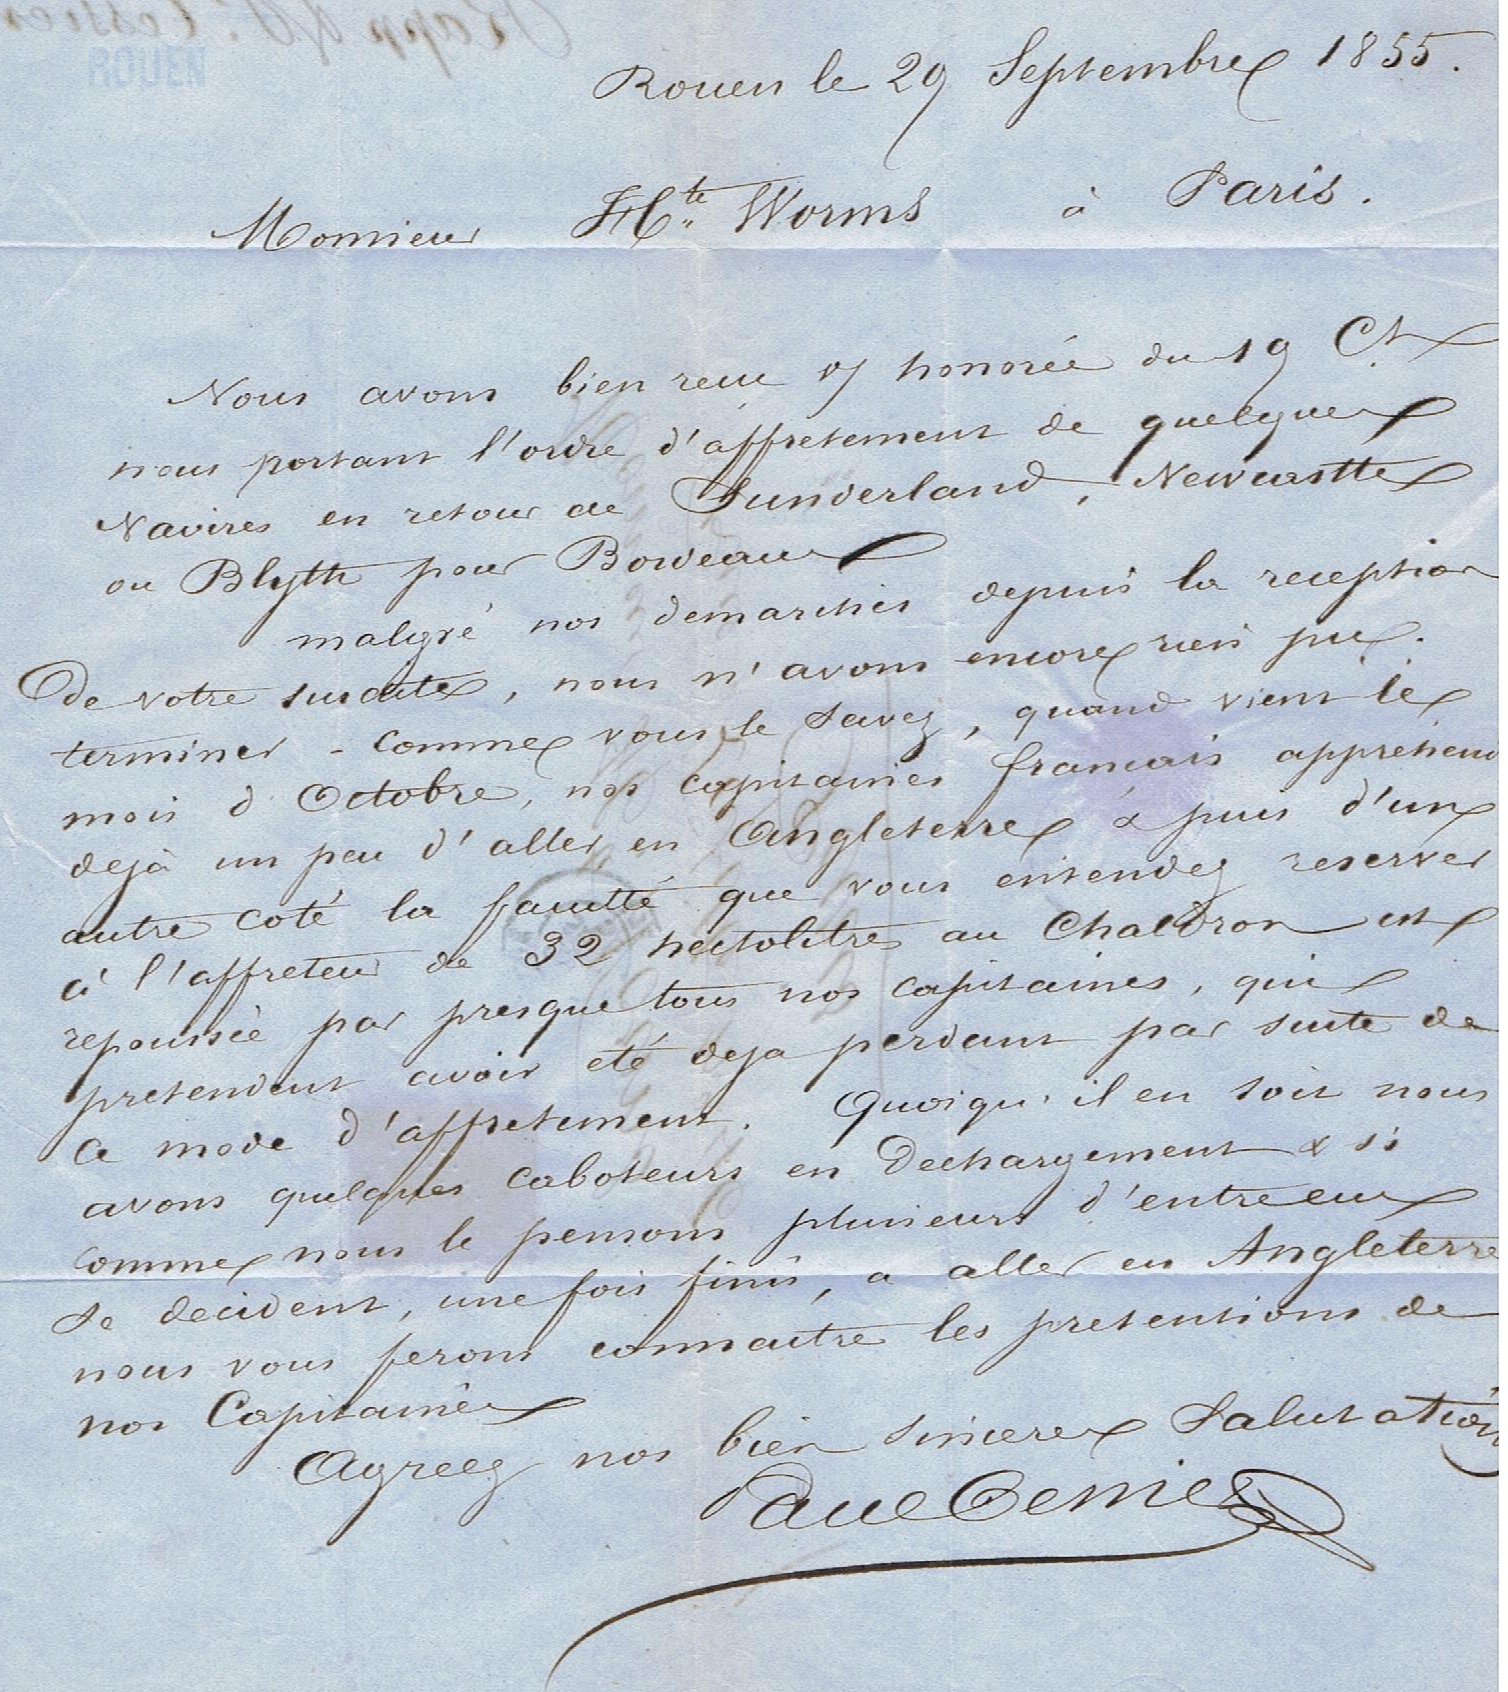 ROUEN
Rouen le 29 Septembre 1855.
Monsieur Hte Worms à Paris.
Nous avons bien recu v/ honorée du 19 Ct
nous portant l'ordre d'affretement de quelques
Navires en retour de Sunderland, Newcastle
ou Blyth pour Bordeaux
malgré nos demarches depuis la reception
de votre susdite, nous n'avons encore rien pu
terminer - comme vous le savez, quand vient le
mois d'Octobre, nos capitaines français apprehend
dejà un peu d'aller en Angleterre & puis d'un
autre coté la faculté que vous entendez reserver
à l'affreteur de 32 hectolitres au Chaldron est
repoussée par presque tous nos capitaines, qui
pretendent avoir eté deja perdant par suite de
ce mode d'affretement. Quoiqu'il en soit nous
avons quelques caboteurs en dechargement & si
comme nous le pensons plusieurs d'entre eux
se decident, une fois finis, a aller en Angleterre
nous vous ferons connaitre les pretentions de
nos Capitaines
Agreez nos bien sinceres Salutations
Paul